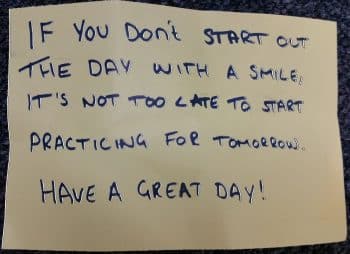 IF YOU Don't START OUT
THE DAY WITH A SMILE,
IT'S NOT TOO LATE TO START
PRACTICING FOR TOMORROW.
HAVE A GREAT DAY!